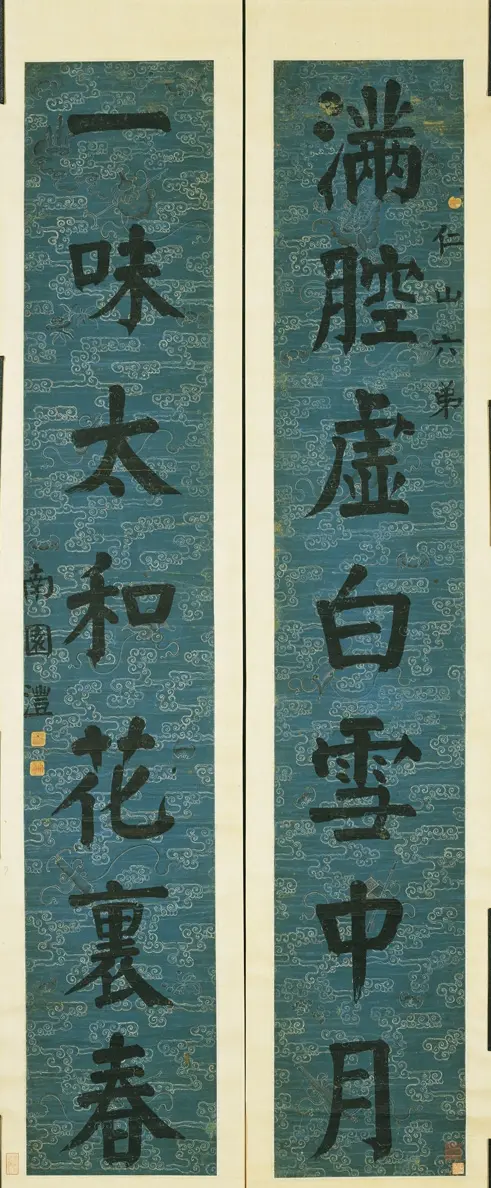 仁山六弟
滿腔虛白雪中月
一味太和花裏春
南園灃